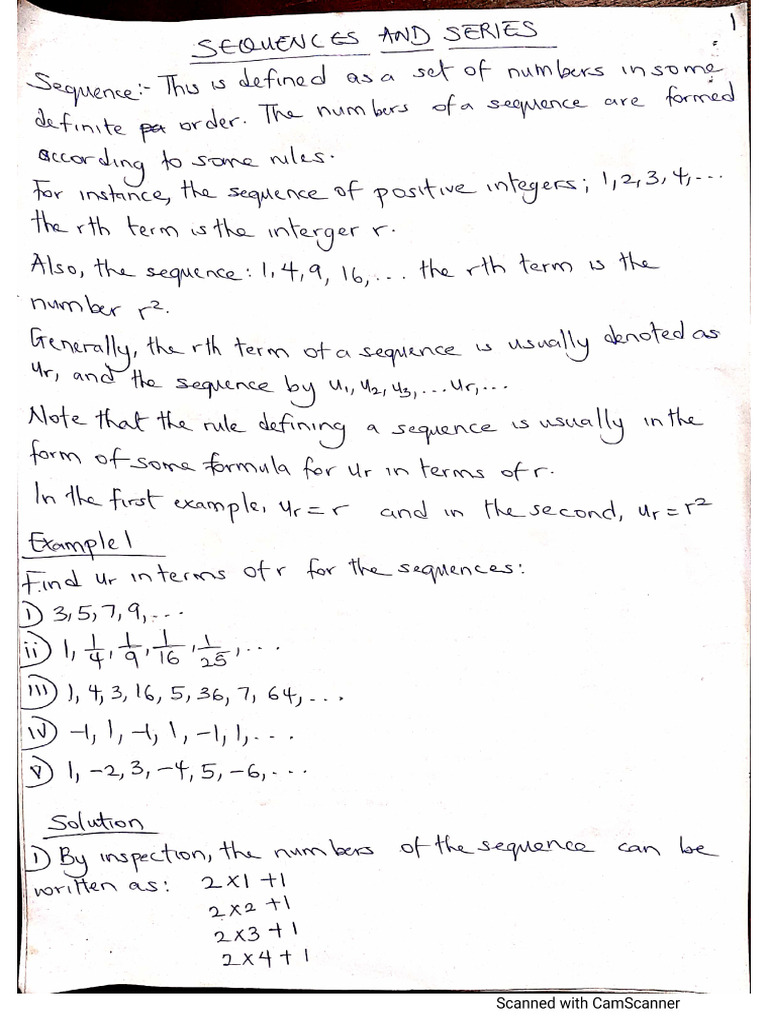 1
SEQUENCES AND SERIES
Sequence:- This is defined as a set of numbers in some
definite order. The numbers of a sequence are formed
according to some rules.
For instance, the sequence of positive integers; 1, 2, 3, 4, ...
the rth term is the interger r.
Also, the sequence: 1, 4, 9, 16, ... the rth term is the
number r².
Generally, the rth term of a sequence is usually denoted as
ur, and the sequence by u₁, u₂, u₃, ... ur, ...
Note that the rule defining a sequence is usually in the
form of some formula for ur in terms of r.
In the first example, ur = r and in the second, ur = r²
Example 1
Find ur in terms of r for the sequences:
i) 3, 5, 7, 9, ...
ii) 1, 1/4, 1/9, 1/16, 1/25, ...
iii) 1, 4, 3, 16, 5, 36, 7, 64, ...
iv) -1, 1, -1, 1, -1, 1, ...
v) 1, -2, 3, -4, 5, -6, ...
Solution
i) By inspection, the numbers of the sequence can be
written as: 2×1 +1
2×2 +1
2×3 +1
2×4 + 1
Scanned with CamScanner